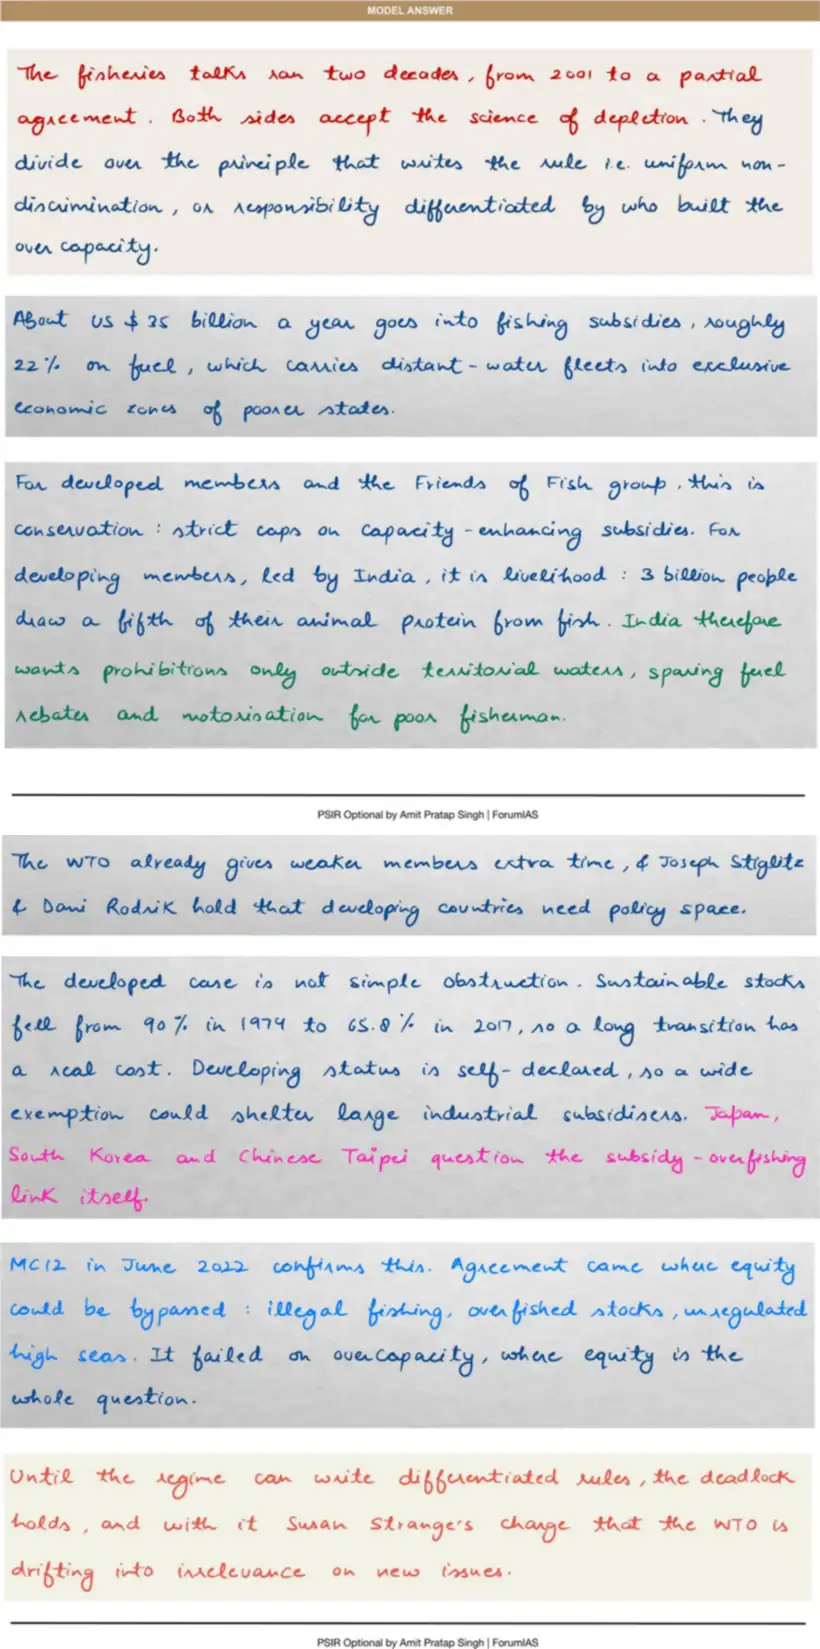 MODEL ANSWER
The fisheries talks ran two decades, from 2001 to a partial
agreement. Both sides accept the science of depletion. They
divide over the principle that writes the rule i.e. uniform non-
discrimination, or responsibility differentiated by who built the
over capacity.
About US $ 35 billion a year goes into fishing subsidies, roughly
22% on fuel, which carries distant-water fleets into exclusive
economic zones of poorer states.
For developed members and the Friends of Fish group, this is
conservation: strict caps on capacity-enhancing subsidies. For
developing members, led by India, it is livelihood: 3 billion people
draw a fifth of their animal protein from fish. India therefore
wants prohibitions only outside territorial waters, sparing fuel
rebates and motorisation for poor fisherman.
PSIR Optional by Amit Pratap Singh | ForumIAS
The WTO already gives weaker members extra time, & Joseph Stiglitz
& Dani Rodrik hold that developing countries need policy space.
The developed case is not simple obstruction. Sustainable stocks
fell from 90% in 1974 to 65.8% in 2017, so a long transition has
a real cost. Developing status is self-declared, so a wide
exemption could shelter large industrial subsidisers. Japan,
South Korea and Chinese Taipei question the subsidy-overfishing
link itself.
MC12 in June 2022 confirms this. Agreement came where equity
could be bypassed: illegal fishing, overfished stocks, unregulated
high seas. It failed on overcapacity, where equity is the
whole question.
Until the regime can write differentiated rules, the deadlock
holds, and with it Susan Strange's charge that the WTO is
drifting into irrelevance on new issues.
PSIR Optional by Amit Pratap Singh | ForumIAS